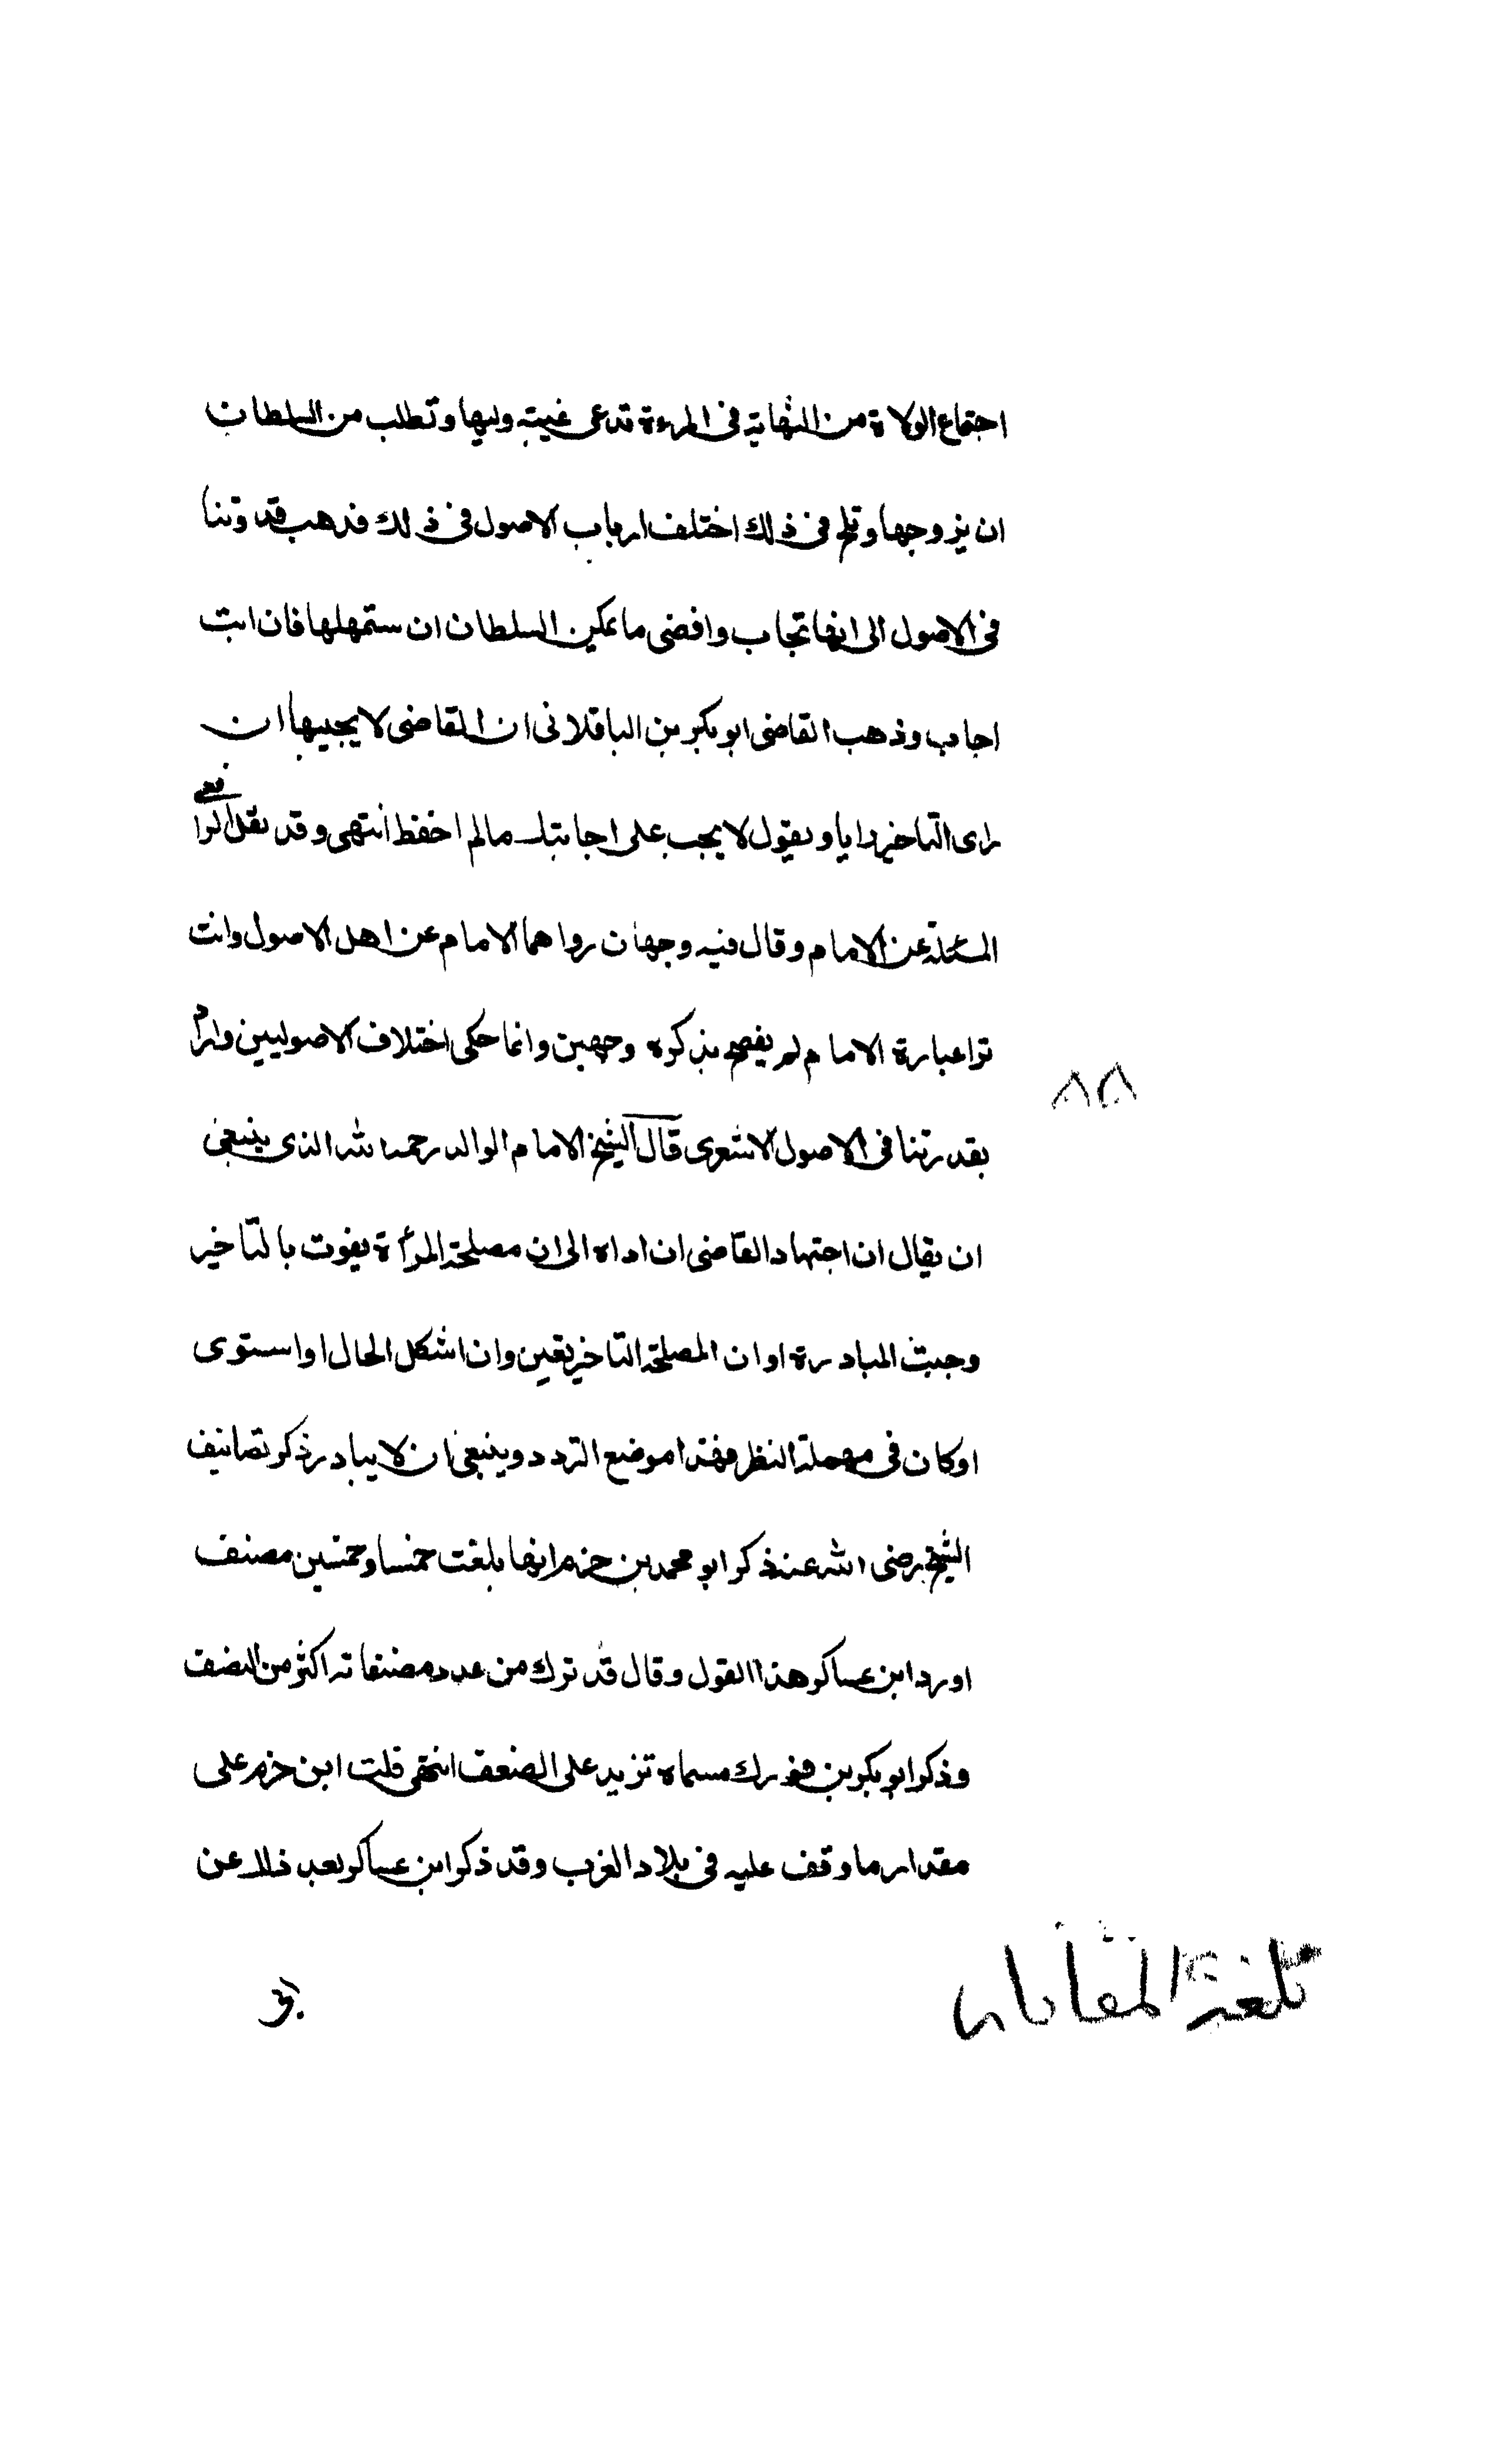 اجتماع الولاة من النهاية في المرءة تدعى غيبة وليها وتطلب من السلطان
ان يزوجها وتلح في ذلك اختلف ارباب الاصول في ذلك فذهب قدوتنا
في الاصول الى انها تجاب وافضى ما يمكن السلطان ان ستمهلها فان ابت
اجاب وذهب القاضي ابو بكر بن الباقلانى ان القاضي لا يجيبها ان
راى التاخير رايا ويقول لا يجب على اجابتك مالم احفظ انتهى وقد نقل الرافعي
المسئلة عن الامام وقال فيه وجهان رواهما الامام عن اهل الاصول وانت
ترا عبارة الامام لم يفصح بذكره وجهين وانما حكى اختلاف الاصوليين واراد
بقدرتنا في الاصول الاشعرى قال الشيخ الامام الوالد رحمه الله الذى ينبغي
ان يقال ان اجتهاد القاضي ان اداه الى ان مصلحة المرأة يفوت بالتاخير
وجبت المبادرة او ان المصلحة التاخير يقين وان اشكل الحال او استوى
او كان في مهملة النظر فهذا موضع التردد وينبغي ان لا يبادر ذكر تصانيف
الشيخ رضى الله عنه ذكر ابو محمد بن حزم انها بلغت خمسا وخمسين مصنف
اورد ابن عساكر هذا القول وقال قد ترك من عدد مصنفاته اكثر من النصف
وذكر ابو بكر بن فورك مسماه تزيد على الضعف انتهى قلت ابن حزم على
مقدار ما وقف عليه في بلاد الغرب وقد ذكر ابن عساكر بعد ذلك عن
بلغة المقابلة